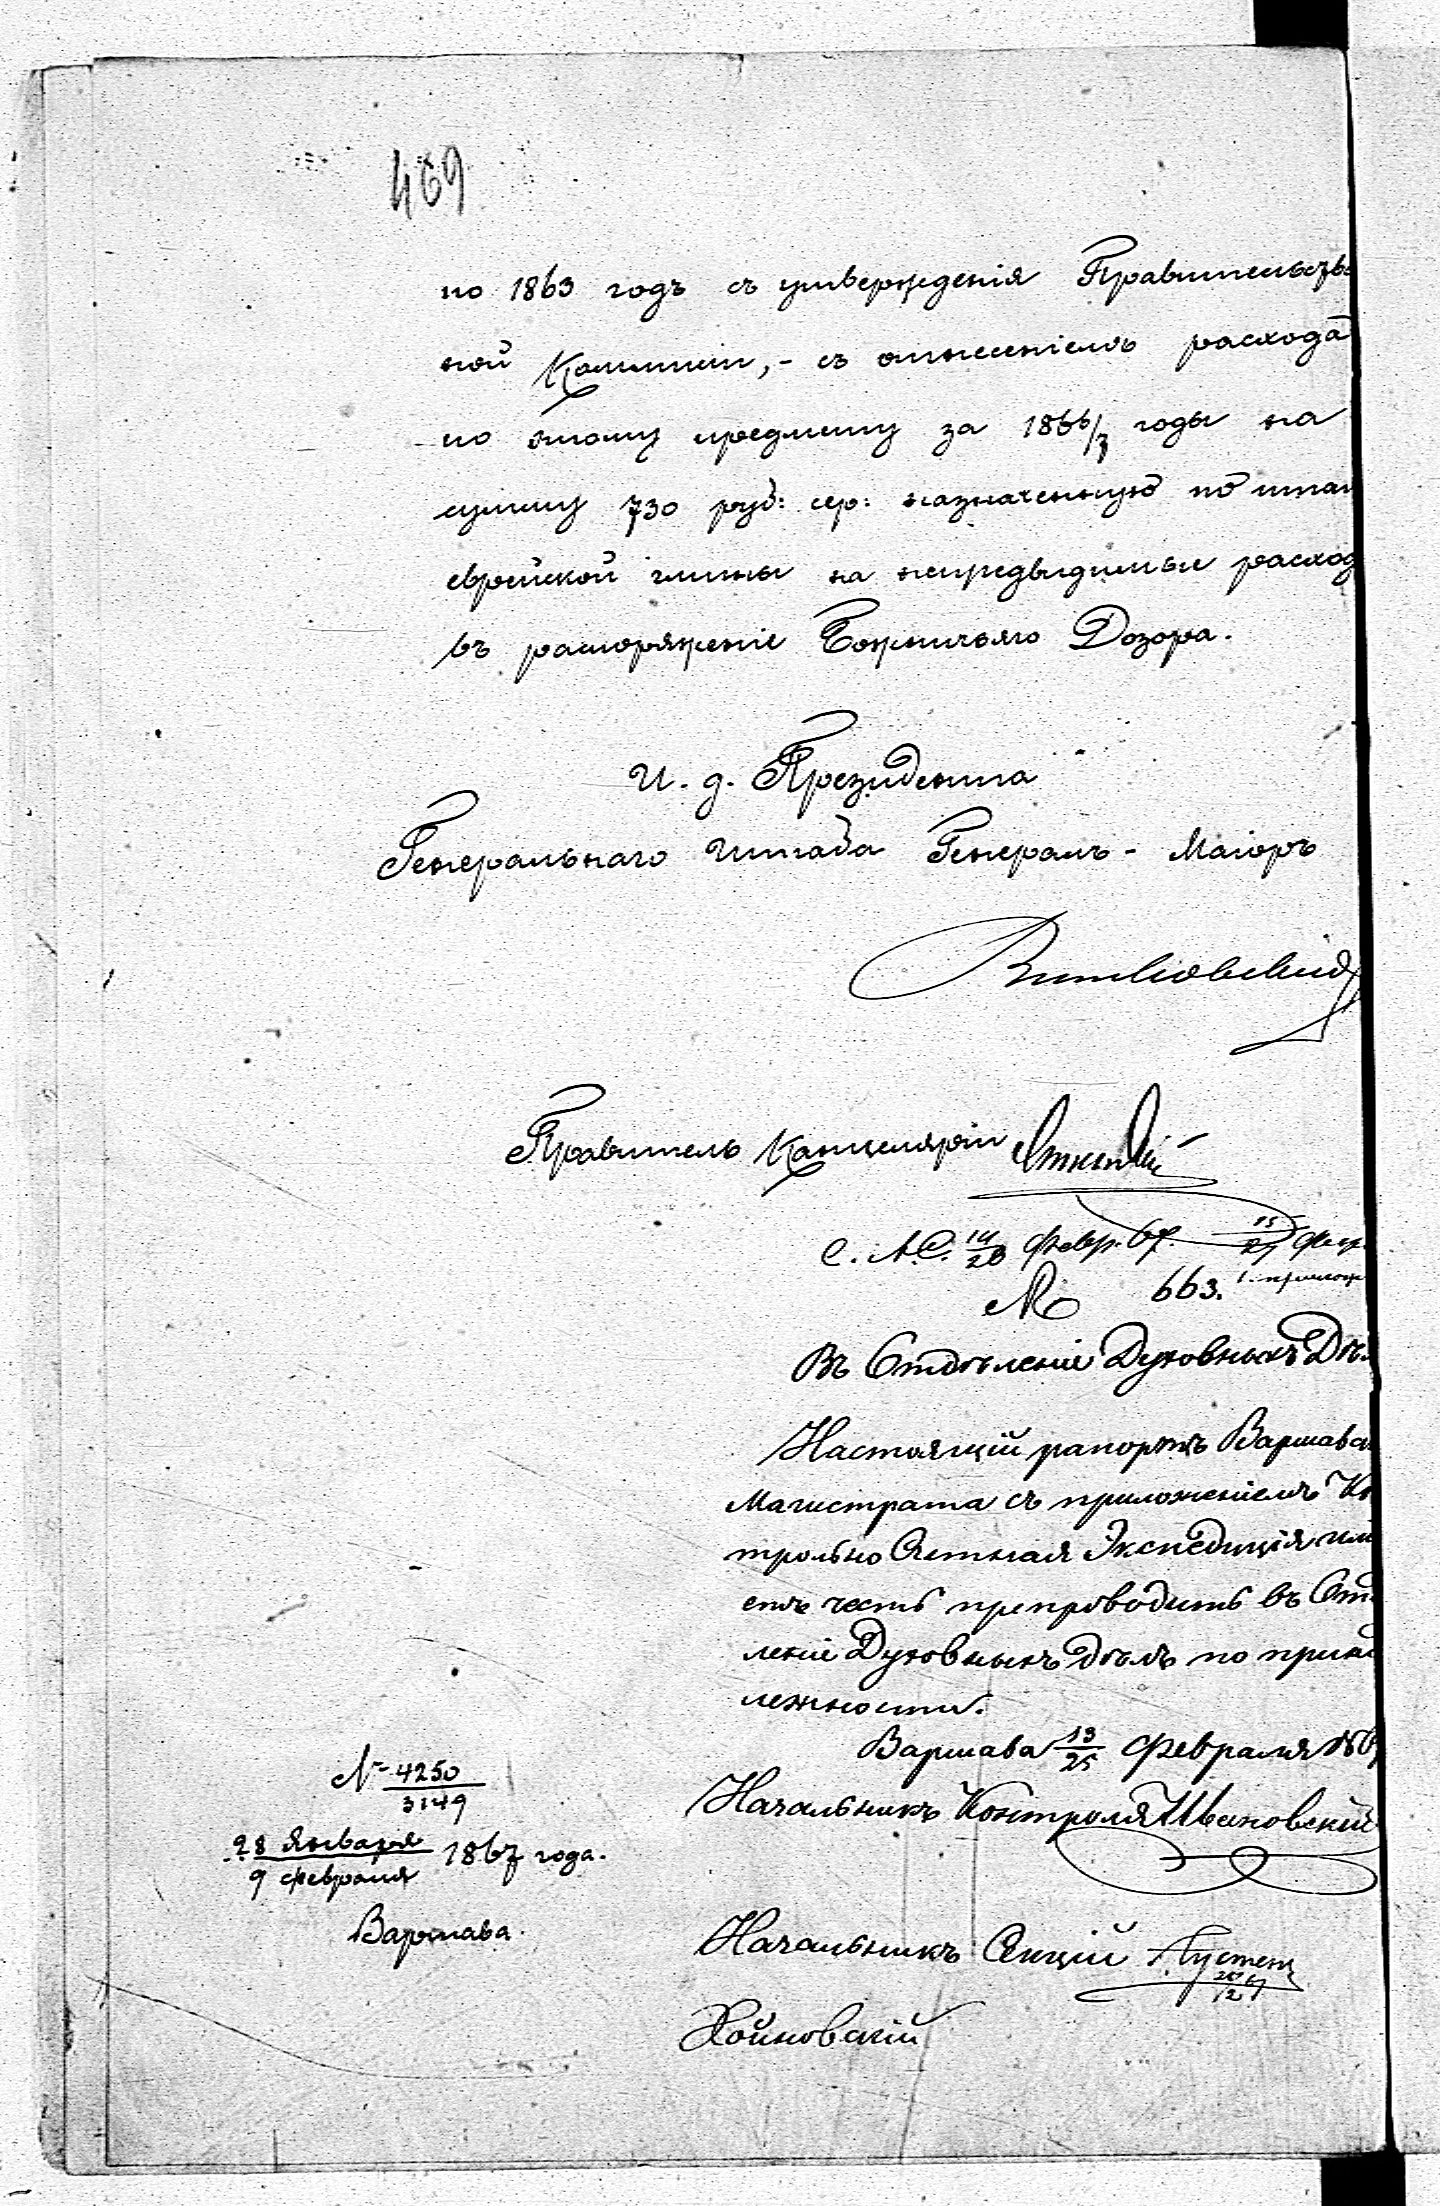 469
по 1863 годъ съ утвержденія Правительстве
ной Коммисіи, - съ отнесеніемъ расхода
по этому предмету за 1866/7 годы на
сумму 730 руб: сер: назначенную по штат
еврейской гмины на непредвидимые расход
въ распоряженіе Божничьяго Дозора.
И. д. Президента
Генеральнаго Штаба Генералъ - Маіоръ
Витковскій
Правитель Канцеляріи
С. А. С. 14/26 Февр. 67. 15/27 Февр.
№ 663. 1. прилож
Въ Отдѣленіе Духовныхъ Дѣл
Настоящій рапортъ Варшавск
Магистрата съ приложеніемъ Ко
трольно Счетная Экспедиція имѣ
етъ честь препроводить въ Отдѣ
леніе Духовныхъ дѣлъ по принад
лежности.
Варшава 13/25 Февраля 1867
Начальникъ Контроля Ивановскій
№ 4250/3149
28 Января/9 Февраля 1867 года.
Варшава.
Начальникъ Секціи
Хойновскій